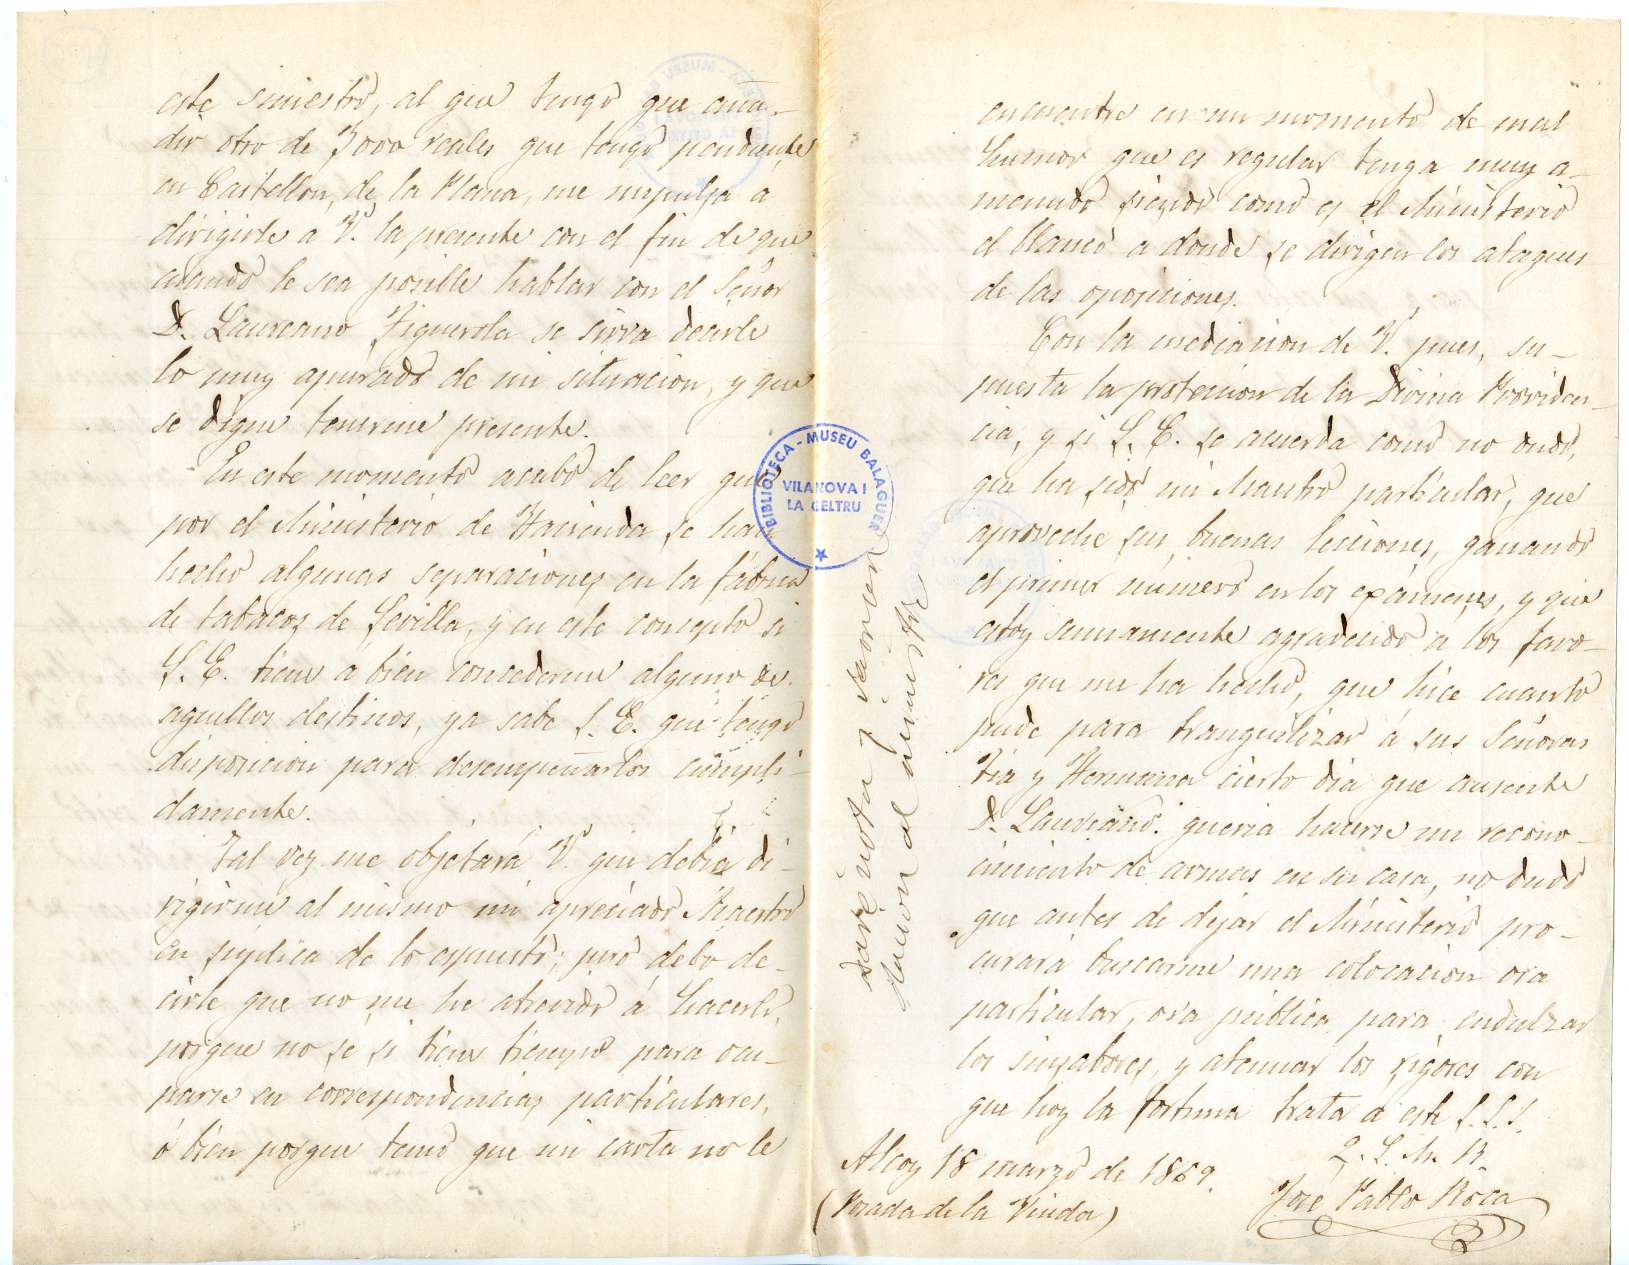 este siniestro, al que tengo que aña-
dir otro de 3000 reales que tengo pendiente
en Castellon, de la Plana, me impulsa á
dirigirle a V. la presente con el fin de que
cuando le sea posible hablar con el Señor
D. Laureano Figuerola se sirva decirle
lo muy apurado de mi situacion, y que
se digne tenerme presente.
En este momento acabo de leer que
por el Ministerio de Hacienda se han
hecho algunas separaciones en la fábrica
de tabacos de Sevilla, y en este concepto si
S. E. tiene á bien concederme alguno de
aquellos destinos, ya sabe S. E. que tengo
disposicion para desempeñarlos cumpli-
damente.
Tal vez me objetará V. que debia di-
rigirme al mismo mi apreciado Maestro
en súplica de lo expuesto; pero debo de-
cirle que no me he atrevido á hacerlo,
porque no se si tiene tiempo para ocu-
parse en correspondencias particulares,
ó bien porque temo que mi carta no le
BIBLIOTECA - MUSEU BALAGUER
VILANOVA I
LA GELTRU
Daré nota y
hacion al ministro
encuentre en un momento de mal
humor que es regular tenga muy a-
menudo siendo como es el Ministerio
el blanco a donde se dirigen los ataques
de las oposiciones.
Con la mediacion de V. pues, su-
puesta la proteccion de la Divina Providen-
cia, y si S. E. se acuerda como no dudo,
que ha sido mi Maestro particular, que
aproveché sus buenas lecciones, ganando
el primer número en los exámenes, y que
estoy sumamente agradecido á los favo-
res que me ha hecho, que hice cuanto
pude para tranquilizar á sus Señoras
Tia y Hermana cierto dia que ausente
D. Laureano. queria hacerse un recono-
cimiento de armas en su casa, no dudo
que antes de dejar el Ministerio pro-
curará buscarme una colocacion ora
particular, ora pública para endulzar
los sinsabores, y atenuar los rigores con
que hoy la fortuna trata a este S.S.S.
Q. S. M. B.
Alcoy 18 marzo de 1869.
José Pablo Roca
(Posada de la Viuda)